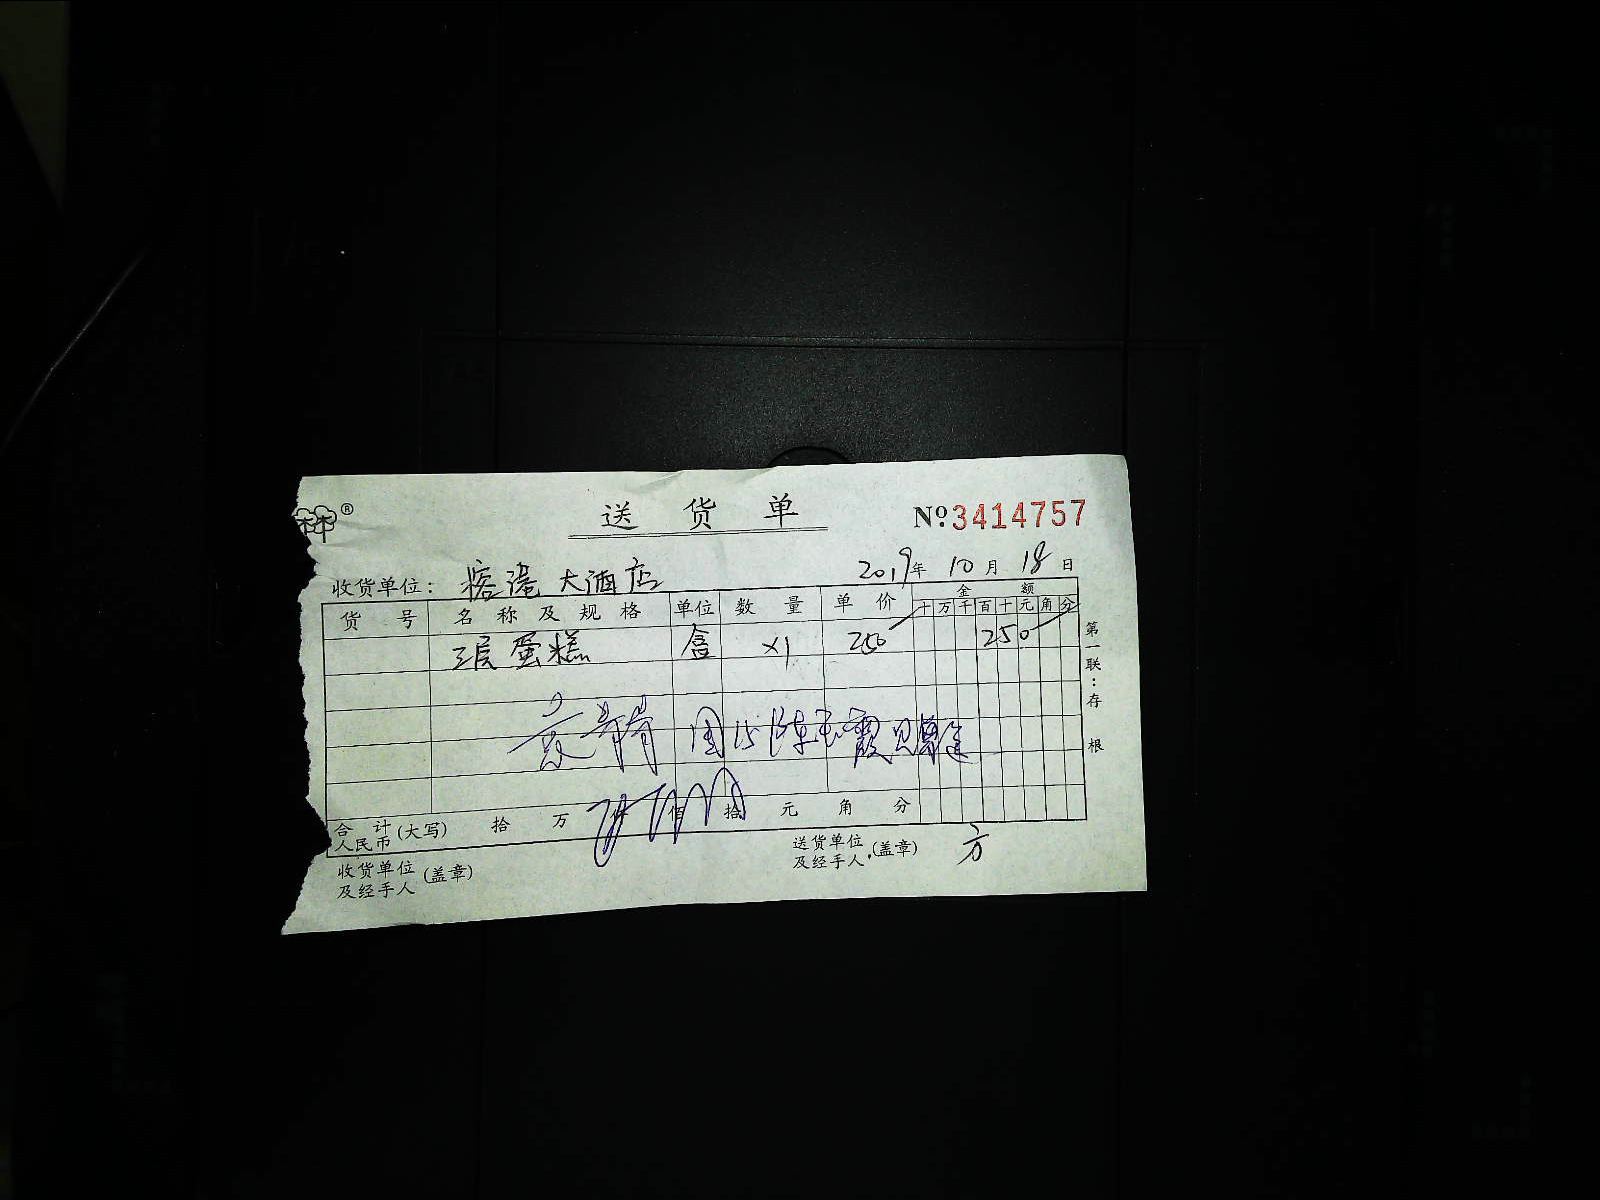 ®
送货单
№3414757
收货单位：榕港大酒店 2019年10月18日
货号 名称及规格 单位 数量 单价 金额
十万千百十元角分
层蛋糕 盒 ×1 250 250
陈玉霞
合计人民币(大写) 拾 万 仟 佰 拾 元 角 分
收货单位及经手人(盖章)
送货单位及经手人(盖章) 方
第一联：存根